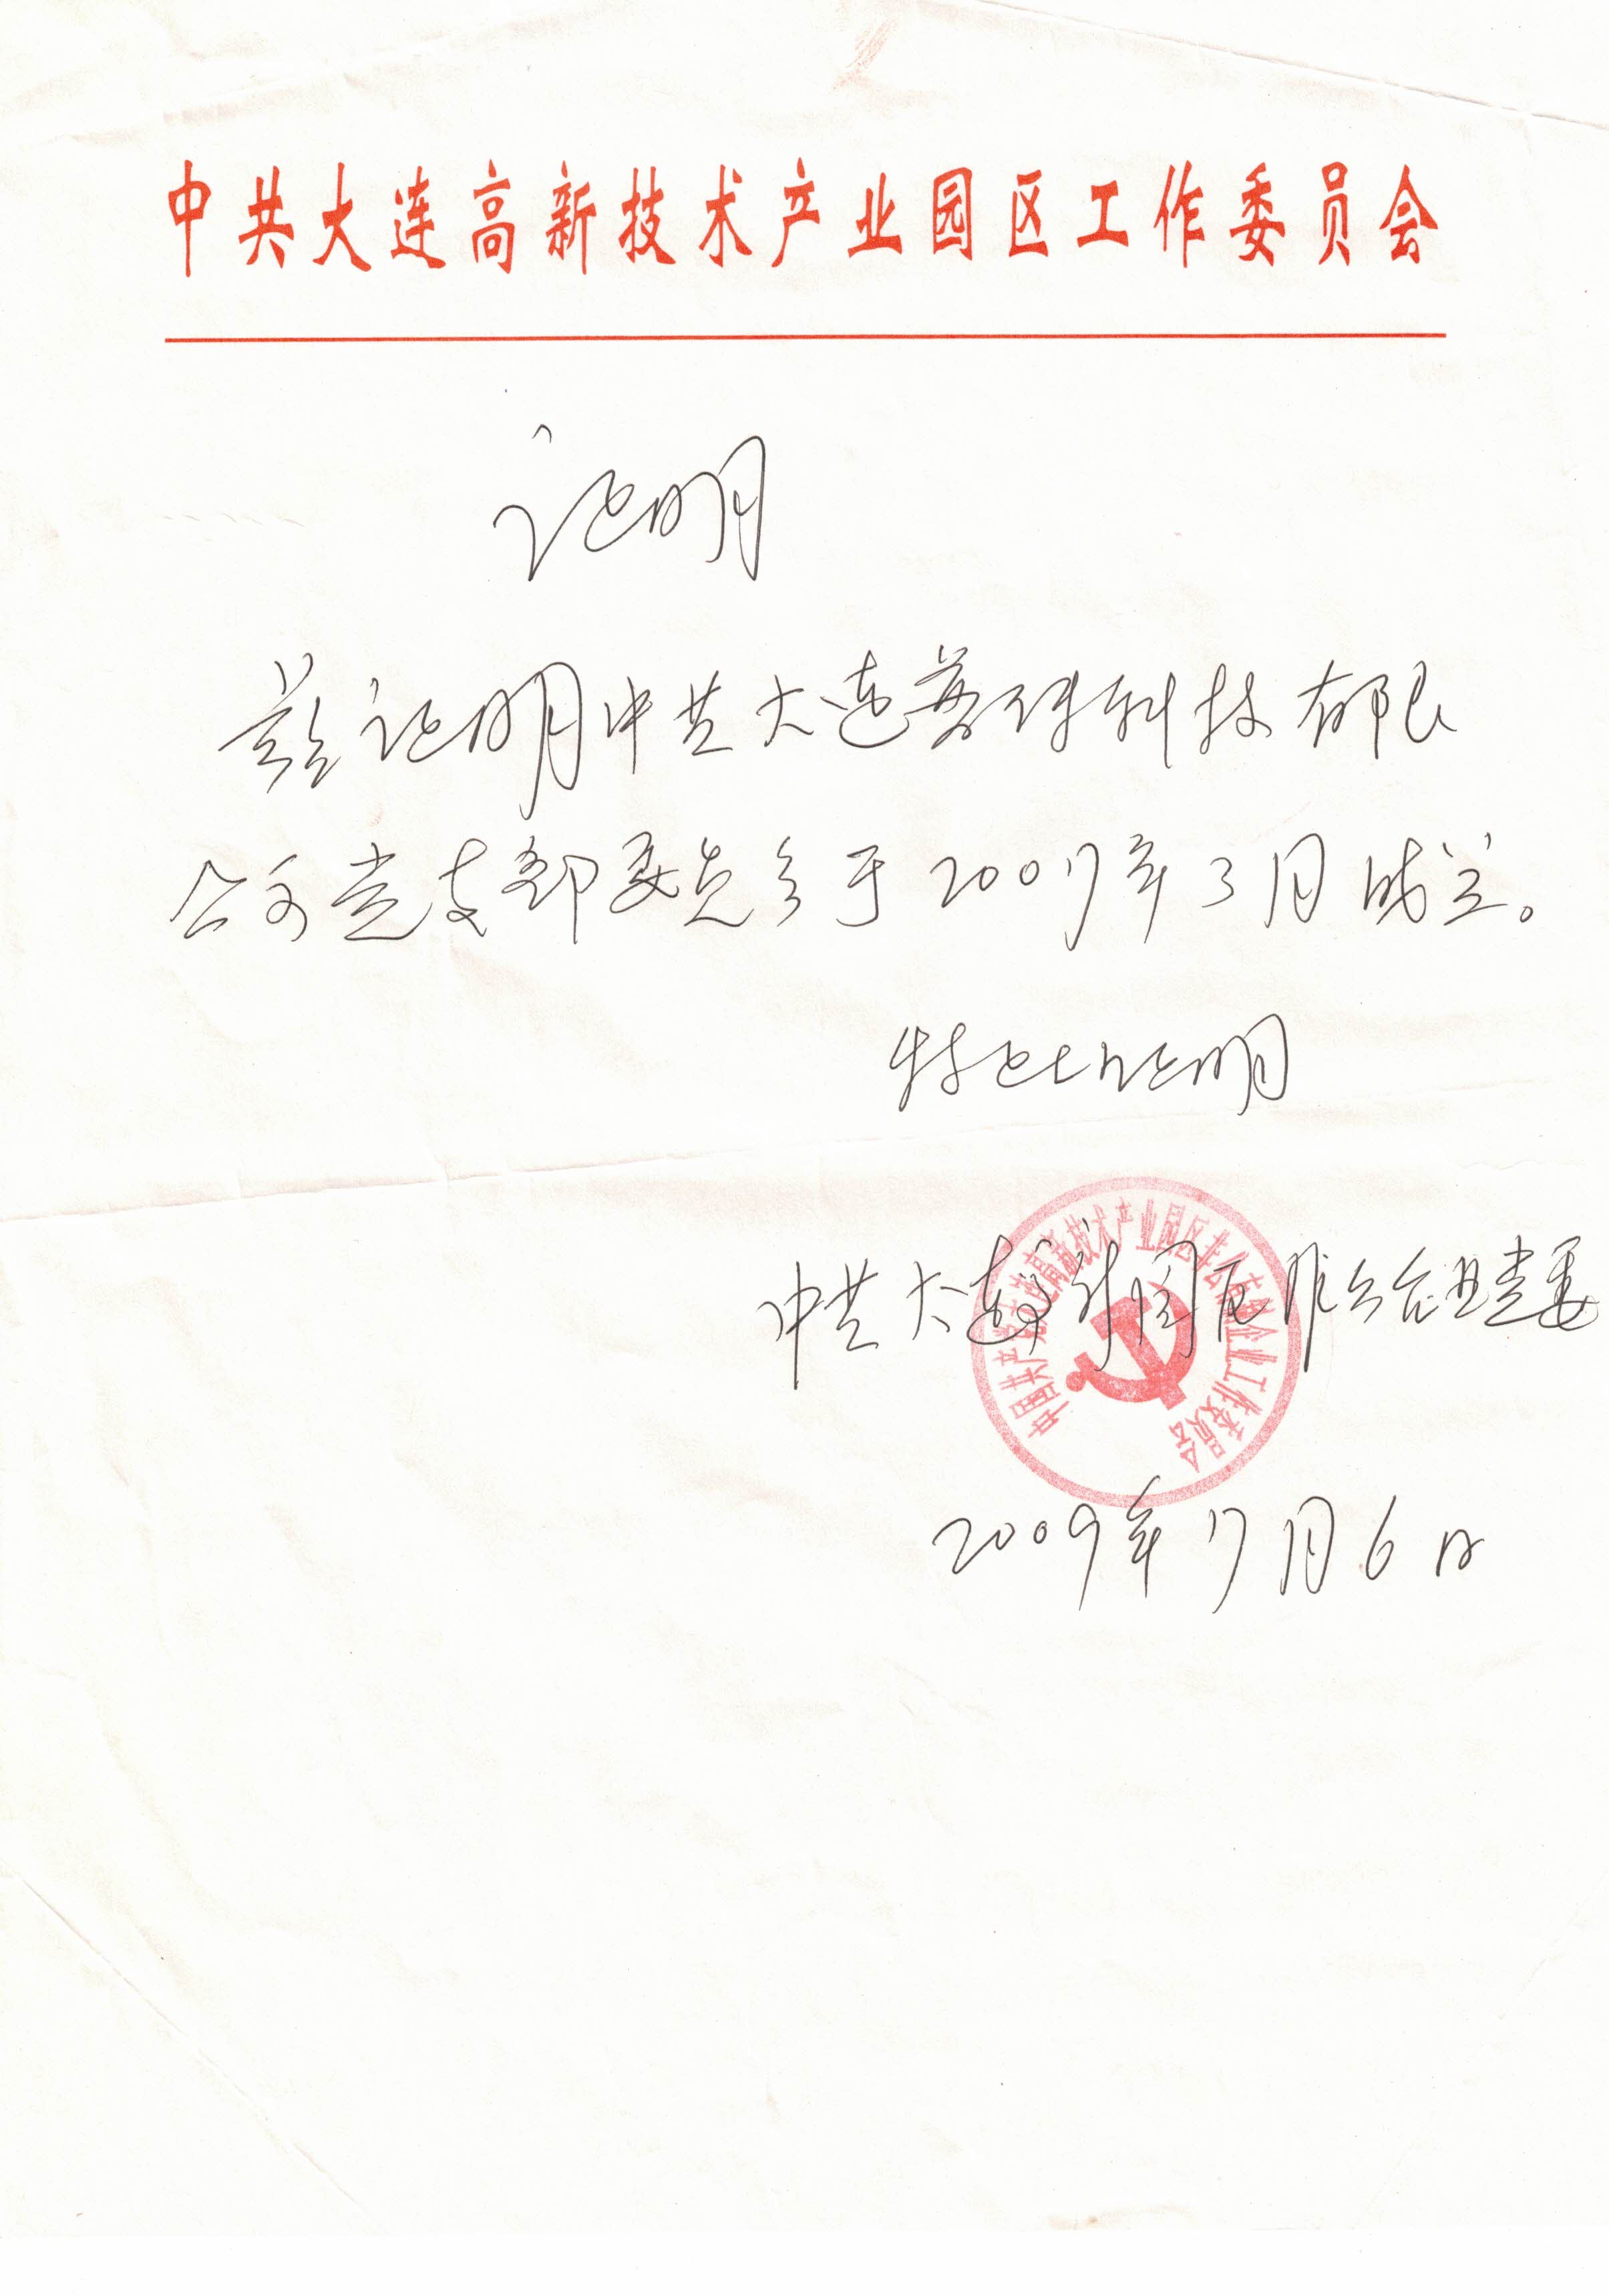 中共大连高新技术产业园区工作委员会
证明
兹证明中共大连 科技有限
公司党支部委员会于2007年3月成立。
特此证明
中共大连高新园区非公企业党委
中国共产党大连高新技术产业园区非公有制企业工作委员会
2009年7月6日